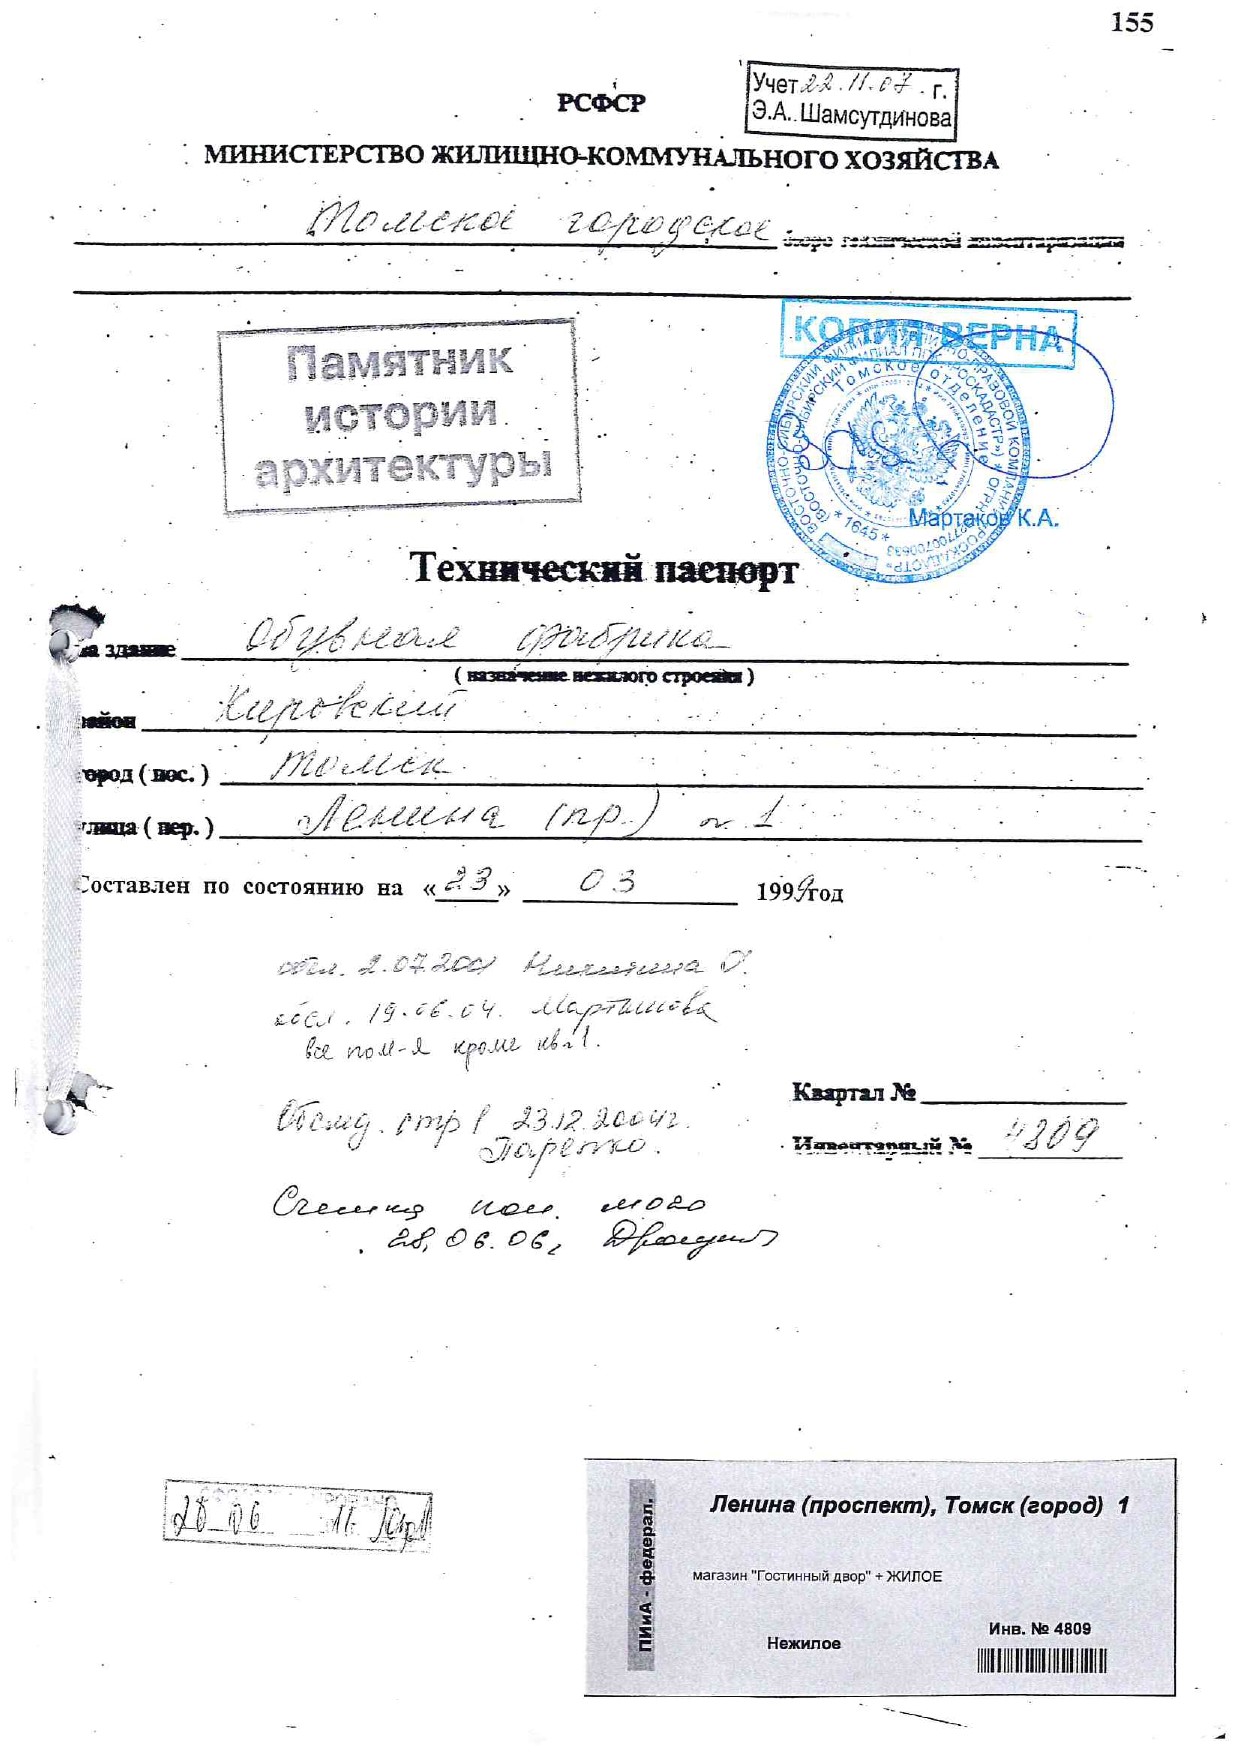 155
Учет 22.11.07 . г.
Э.А. Шамсутдинова
РСФСР
МИНИСТЕРСТВО ЖИЛИЩНО-КОММУНАЛЬНОГО ХОЗЯЙСТВА
Томское городское бюро технической инвентаризации
КОПИЯ ВЕРНА
Памятник
истории
архитектуры
Томское отделение
* 1645 *
Мартаков К.А.
Технический паспорт
на здание Обувная фабрика
( назначение нежилого строения )
район Кировский
город ( пос. ) Томск
улица ( пер. ) Ленина (пр.) № 1
Составлен по состоянию на «23» 03 1999 год
обсл. 2.07.2001 Никитина О.
обсл. 19.06.04. Мартышова
все пом-я кроме кв. 1.
Квартал №
Обслед. стр 1 23.12.2004г.
Инвентарный № 4809
28.06.06г
28 06 11
ПИиА - федерал.
Ленина (проспект), Томск (город) 1
магазин "Гостинный двор" + ЖИЛОЕ
Нежилое
Инв. № 4809